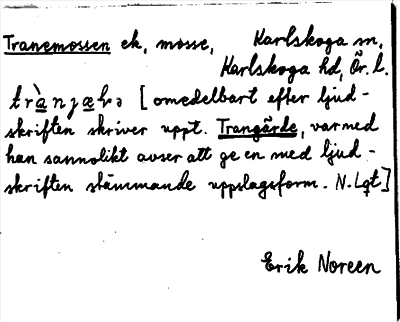 Tranemossen ek, mosse, Karlskoga sn.
Karlskoga hd, Ör. l.
[omedelbart efter ljud-
skriften skriver uppt. Trangärde, varmed
han sannolikt avser att ge en med ljud-
skriften stämmande uppslagsform. N. Lqt]
Erik Noreen